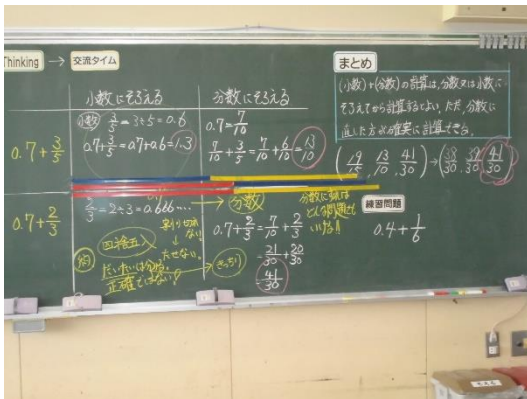 Thinking → 交流タイム
小数にそろえる
分数にそろえる
0.7+3/5
小数 3/5=3÷5=0.6
0.7+3/5=0.7+0.6=1.3
0.7=7/10
7/10+3/5=7/10+6/10=13/10
0.7+2/3
2/3=2÷3=0.666…
割り切れない
たせない。
四捨五入
約
だいたいは分かる
正確ではない
→分数
きっちり
分数に直すと
どんな問題でも
いける!!
0.7+2/3=7/10+2/3
=21/30+20/30
=41/30
まとめ
(小数)+(分数)の計算は、分数又は小数に
そろえてから計算するとよい。ただ、分数に
直した方が確実に計算できる。
(19/15, 13/10, 41/30)→(38/30, 39/30, 41/30)
練習問題
0.4+1/6